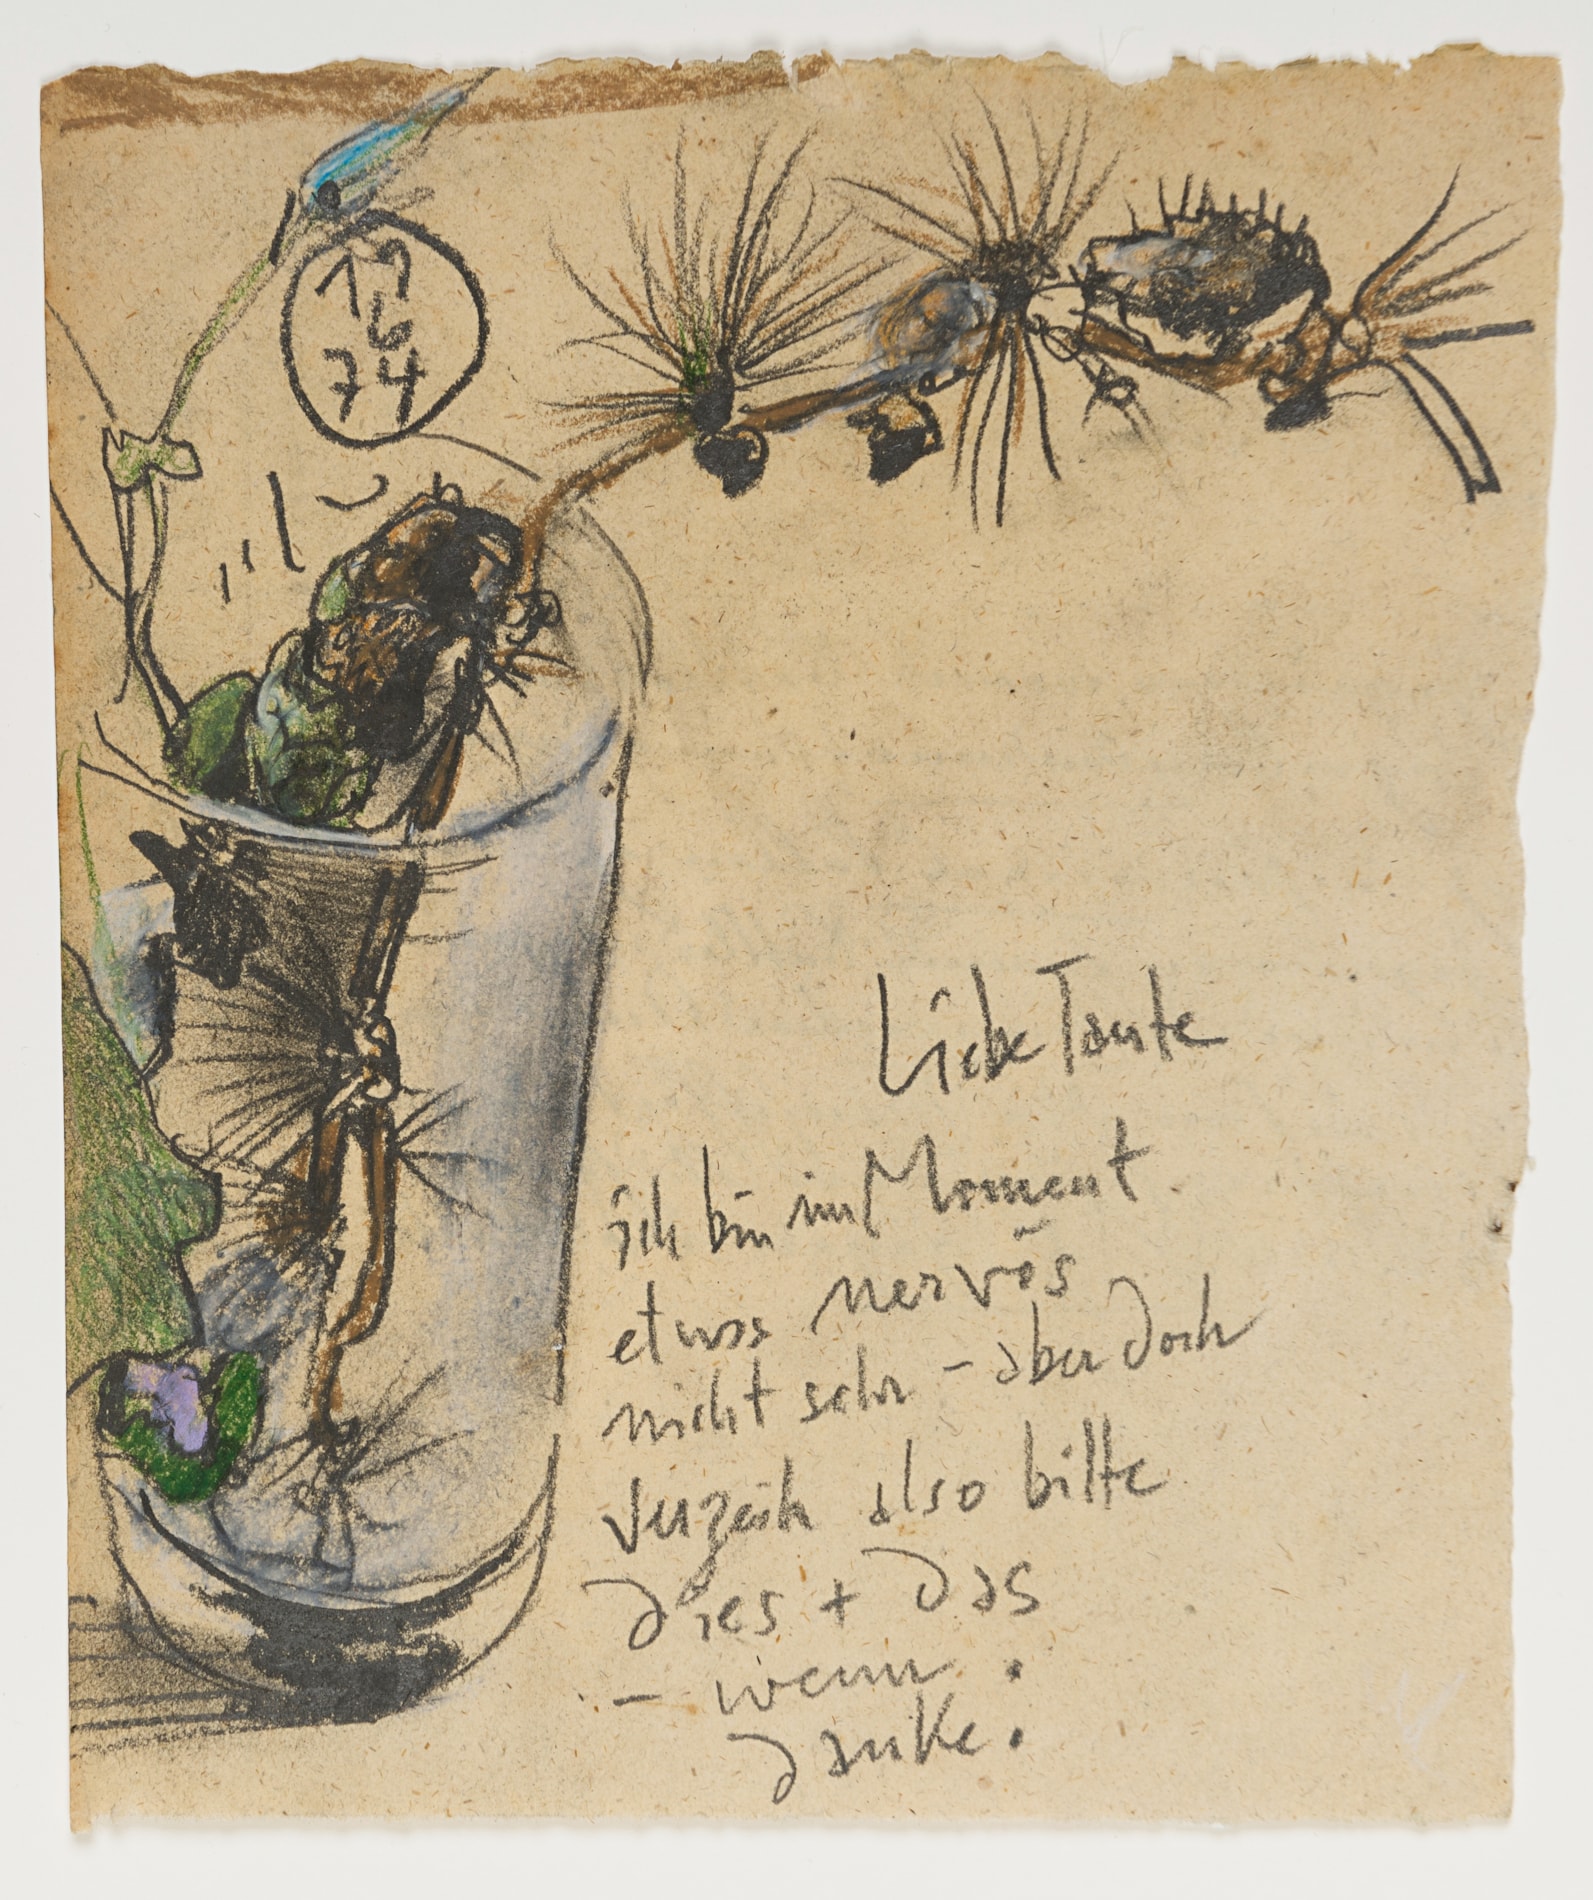 19
6
74
Liebe Tante
ich bin im Moment
etwas nervös
nicht sehr – aber doch
verzeih also bitte
dies + das
– wenn .
danke.